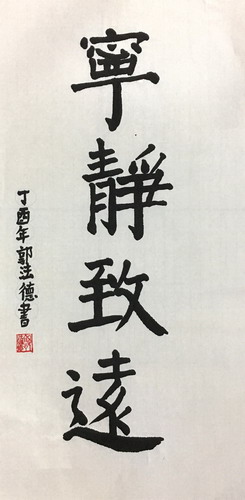 寧靜致遠
丁酉年郭法德書